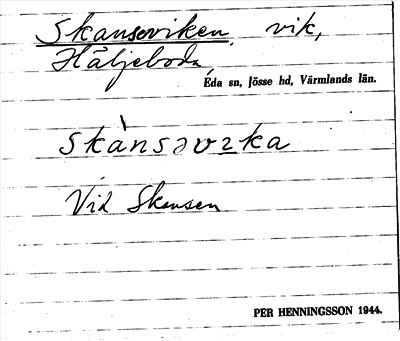 Skansviken, vik,
Häljeboda,
Eda sn, Jösse hd, Värmlands län.
skànsəvɪka
Vid Skansen
PER HENNINGSSON 1944.